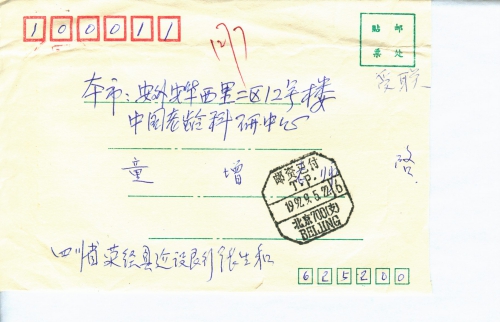 100011
贴邮
票处
本市:安外安华西里二区12号楼
中国老龄科研中心
童 增 启
邮资已付
T.P.
1992.9.5.22
北京100(支)
BEIJING
四川省荥经县建设银行张生和
625200